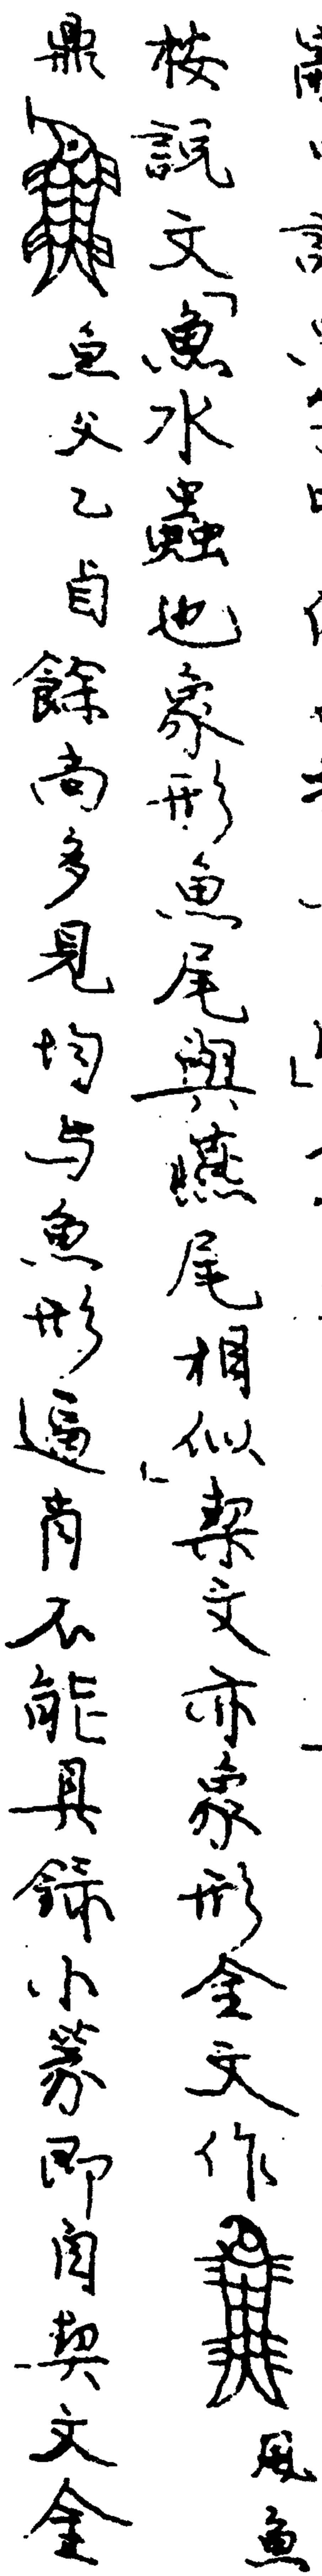 按説文「魚水蟲也象形魚尾與燕尾相似」契文亦象形金文作鳳魚
鼎魚父乙卣餘尚多見均与魚形逼肖不能具錄小篆即自契文金